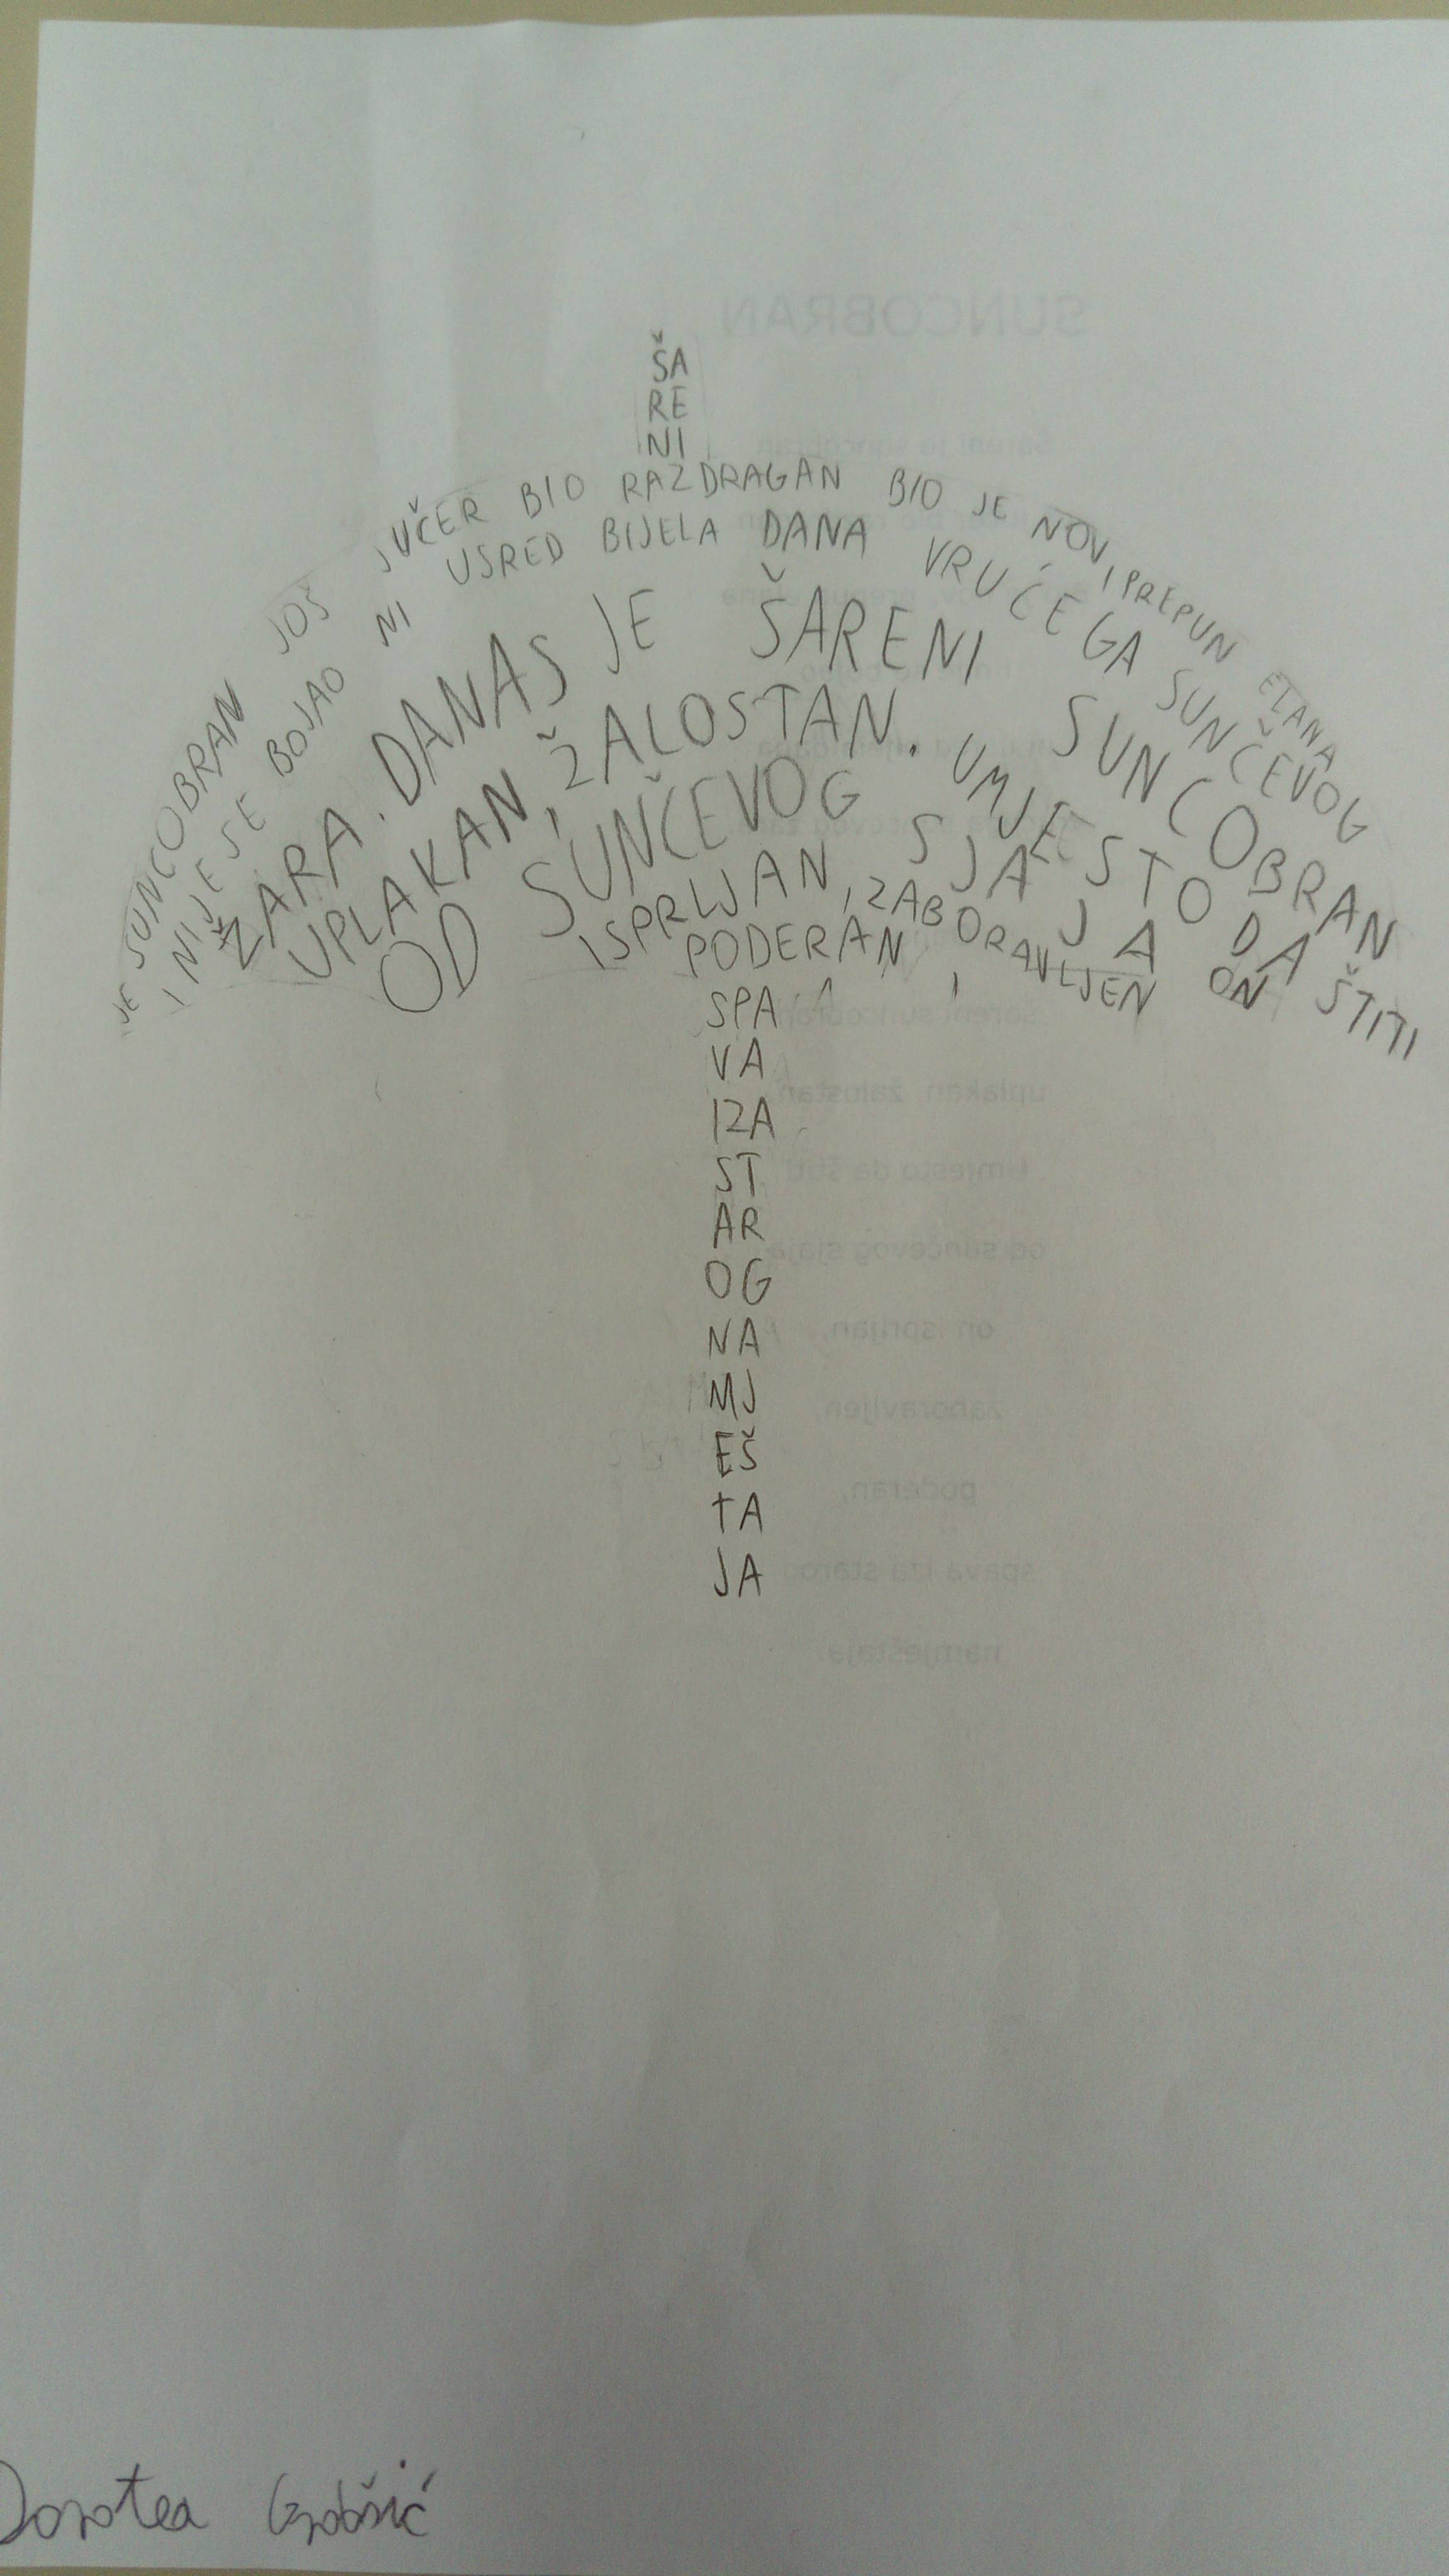 ŠA
RE
NI
JE SUNCOBRAN JOŠ JUČER BIO RAZDRAGAN BIO JE NOV, PREPUN ELANA
I NIJE SE BOJAO NI USRED BIJELA DANA VRUĆEGA SUNČEVOG
ŽARA. DANAS JE ŠARENI SUNCOBRAN
UPLAKAN, ŽALOSTAN. UMJESTO DA ŠTITI
OD SUNČEVOG SJAJA ON
ISPRLJAN, ZABORAVLJEN,
PODERAN
SPA
VA
IZA
ST
AR
OG
NA
MJ
EŠ
TA
JA
Dorotea